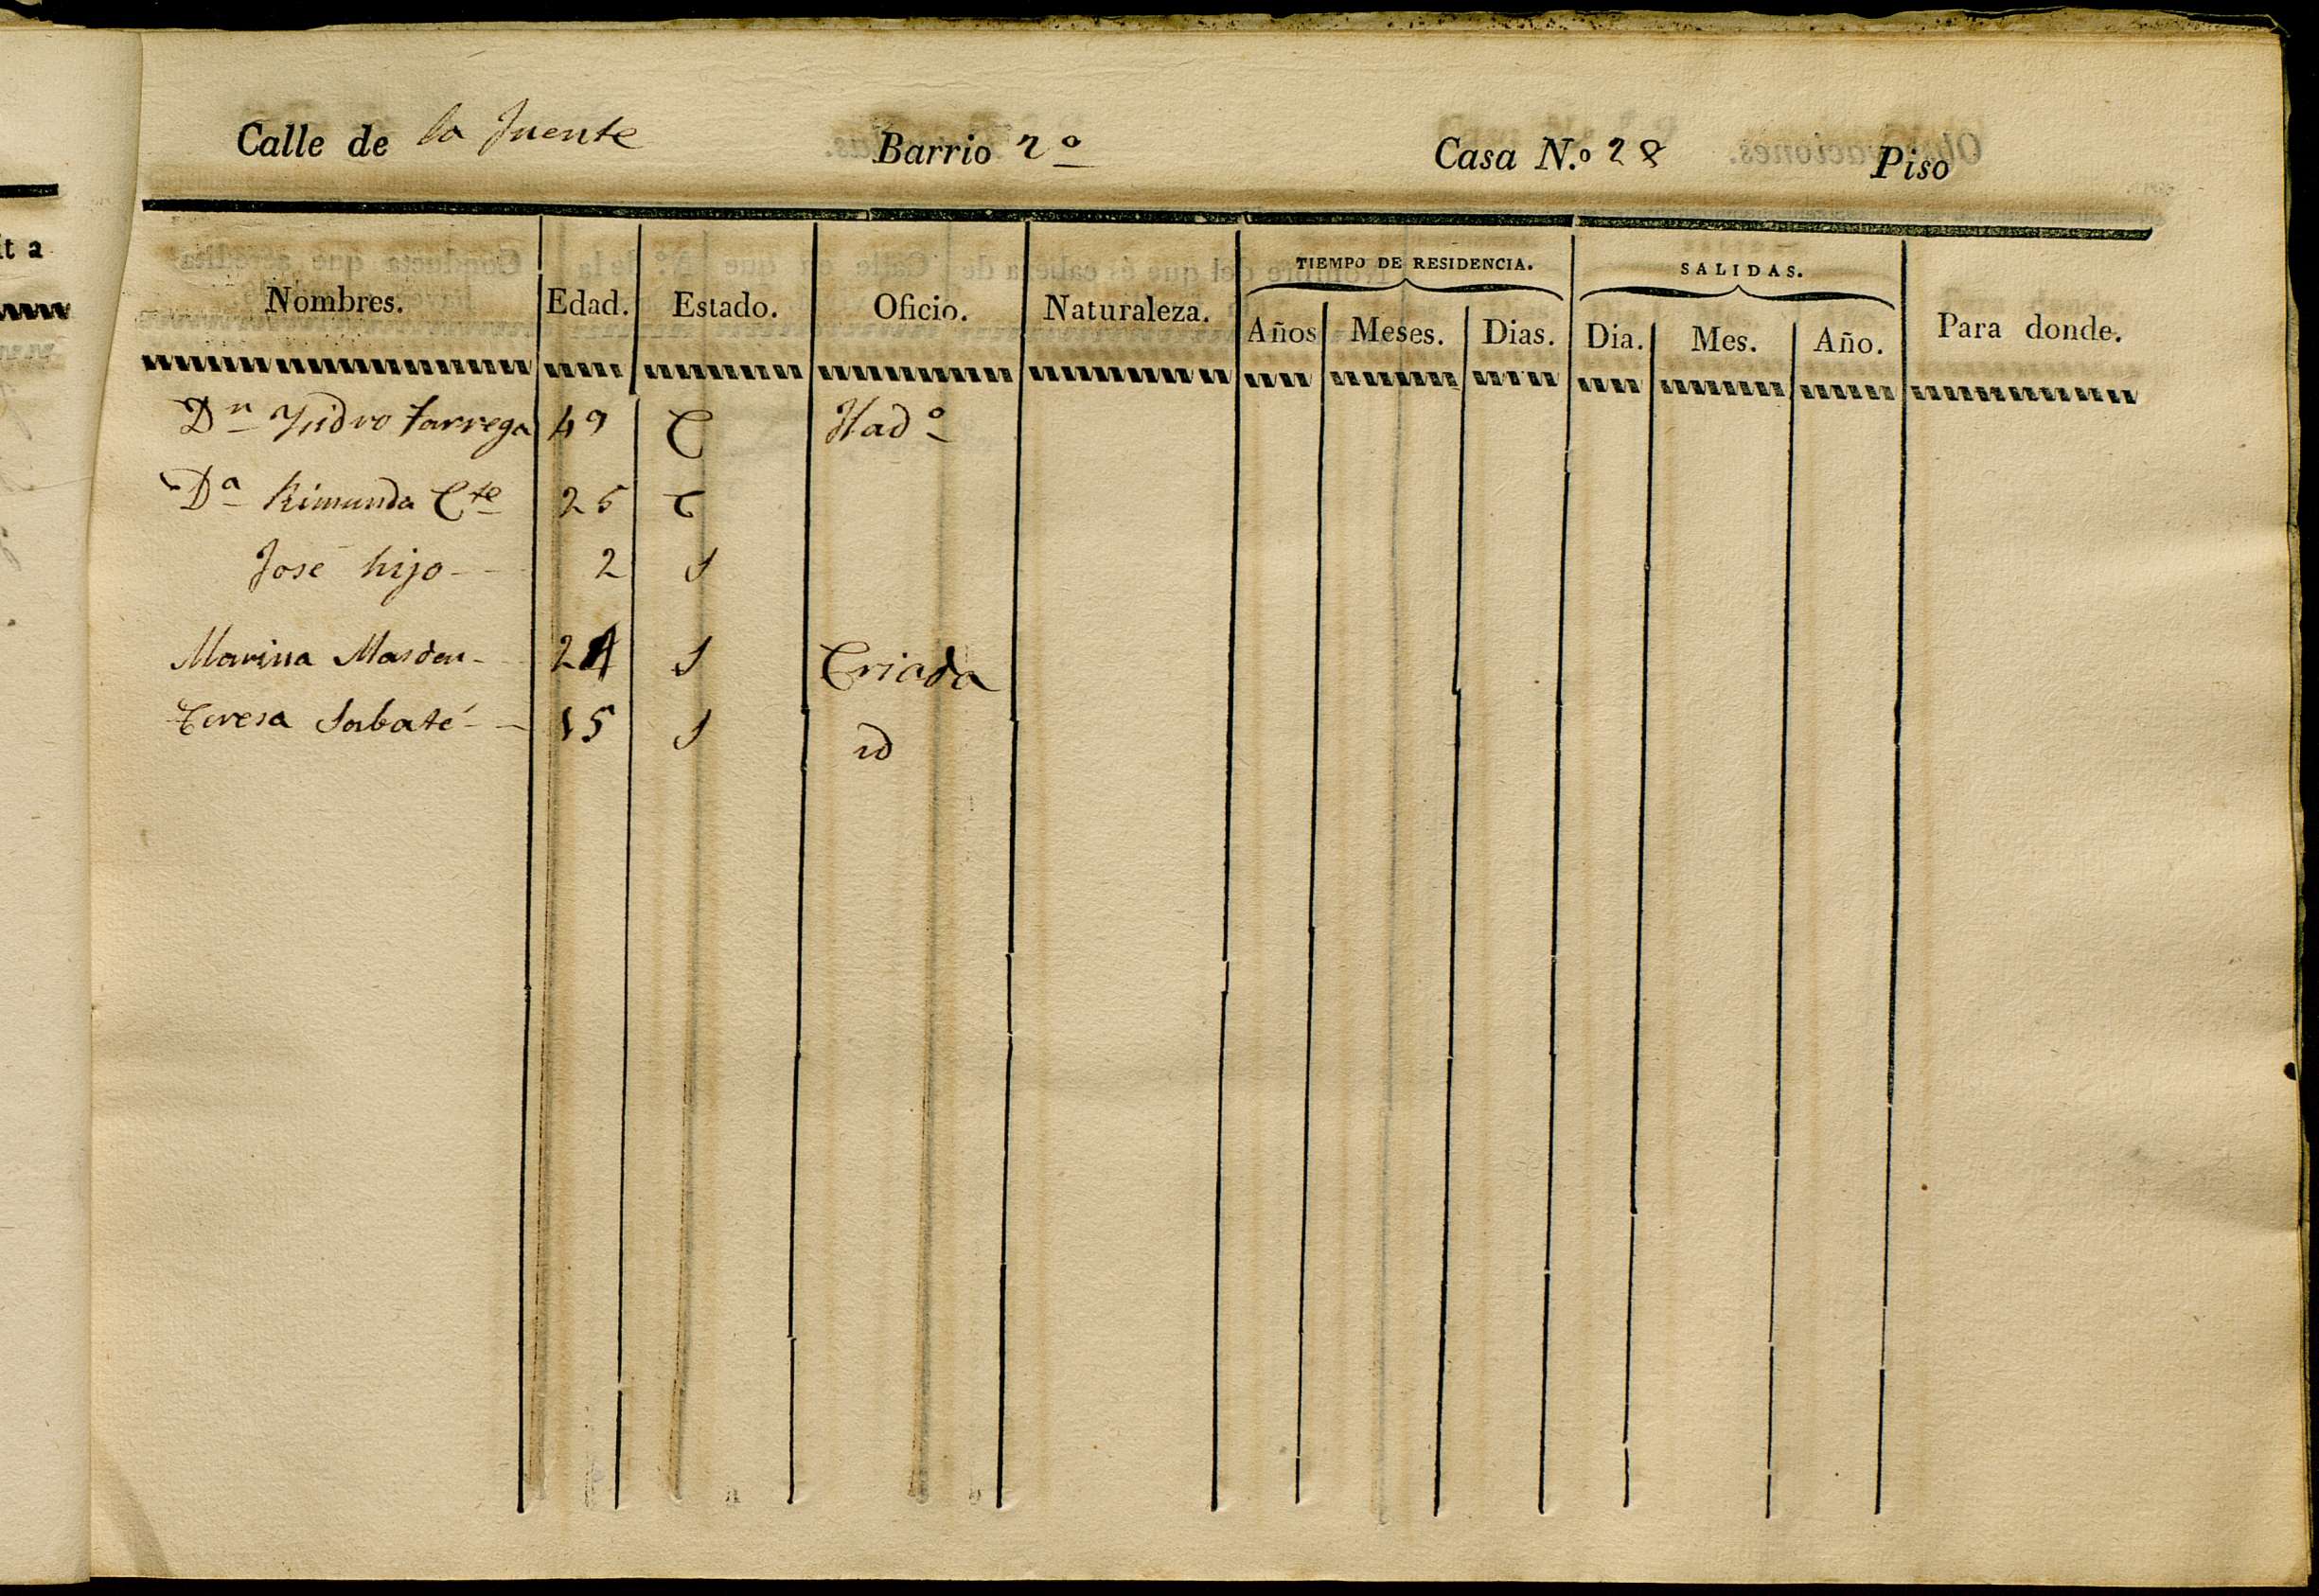 Calle de la fuente Barrio 2º Casa N.º 28 Piso
TIEMPO DE RESIDENCIA. SALIDAS.
Nombres. Edad. Estado. Oficio. Naturaleza. Años Meses. Dias. Dia. Mes. Año. Para donde.
Dn Ysidro Tarrega 49 C Hadº
Da Rimunda Cte 25 C
José hijo 2 S
Marina Masdeu 24 S Criada
Teresa Sabaté 15 S id